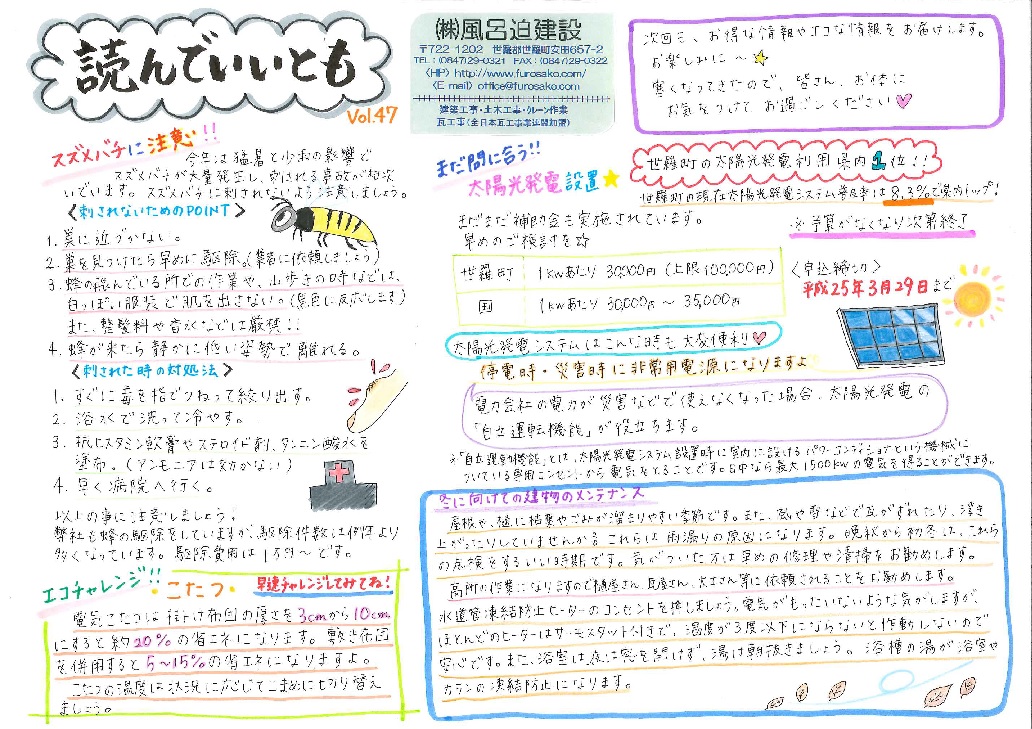 読んでいいとも
Vol.47
㈱風呂迫建設
〒722-1202 世羅郡世羅町安田657-2
TEL:(0847)29-0321 FAX:(0847)29-0322
〈HP〉http://www.furosako.com/
〈E mail〉office@furosako.com
建築工事・土木工事・クレーン作業
瓦工事(全日本瓦工事業連盟加盟)
次回も、お得な情報やエコな情報をお届けします。
お楽しみに~
寒くなってきたので、皆さん、お体に
お気をつけてお過ごしください
スズメバチに注意!!
今年は猛暑と少雨の影響で
スズメバチが大量発生し、刺される事故が相次
いでいます。スズメバチに刺されないよう注意しましょう。
〈刺されないためのPOINT〉
1. 巣に近づかない。
2. 巣を見つけたら早めに駆除。(業者に依頼しましょう)
3. 蜂の飛んでいる所での作業や、山歩きの時などは、
白っぽい服装で肌を出さない。(黒色に反応します)
また、整髪料や香水などは厳禁!!
4. 蜂が来たら静かに低い姿勢で離れる。
〈刺された時の対処法〉
1. すぐに毒を指でつねって絞り出す。
2. 冷水で洗って冷やす。
3. 抗ヒスタミン軟膏やステロイド剤、タンニン酸水を
塗布。(アンモニアは効かない)
4. 早く病院へ行く。
以上の事に注意しましょう!
弊社も蜂の駆除をしていますが、駆除件数は例年より
多くなっています。駆除費用は1万円~です。
エコチャレンジ!!
こたつ
早速チャレンジしてみてね!
電気こたつは掛け布団の厚さを3cmから10cm
にすると約20%の省エネになります。敷き布団
を併用すると5~15%の省エネになりますよ。
こたつの温度は状況に応じてこまめに切り替え
ましょう。
まだ間に合う!!
太陽光発電設置
まだまだ補助金も実施されています。
早めのご検討を
世羅町 1kwあたり 30,000円 (上限100,000円)
国 1kwあたり 30,000円~35,000円
世羅町の太陽光発電利用県内1位!!
世羅町の現在太陽光発電システム普及率は8.3%で県内トップ!
※予算がなくなり次第終了
〈申込締切〉
平成25年3月29日まで
太陽光発電システムはこんな時も大変便利
停電時・災害時に非常用電源になりますよ
電力会社の電力が災害などで使えなくなった場合、太陽光発電の
「自立運転機能」が役立ちます。
※「自立運転機能」とは、太陽光発電システム設置時に室内に設けるパワーコンディショナという機械に
ついている専用コンセントから電気をとることです。日中なら最大1500kwの電気を得ることができます。
冬に向けての建物のメンテナンス
屋根や、樋に枯葉やごみが溜まりやすい季節です。また、風や雪などで瓦がずれたり、浮き
上がったりしていませんか？これらは雨漏りの原因になります。晩秋から初冬は、これら
の点検をするいい時期です。気がついた方は早めの修理や清掃をお勧めします。
高所の作業になりますので植屋さん、瓦屋さん、大工さん等に依頼されることをお勧めします。
水道管凍結防止ヒーターのコンセントを挿しましょう。電気がもったいないような気がしますが、
ほとんどのヒーターはサーモスタット付きで、温度が3度以下にならないと作動しないので
安心です。また、浴室は夜に窓を開けず、湯は朝抜きましょう。浴槽の湯が浴室や
カランの凍結防止になります。